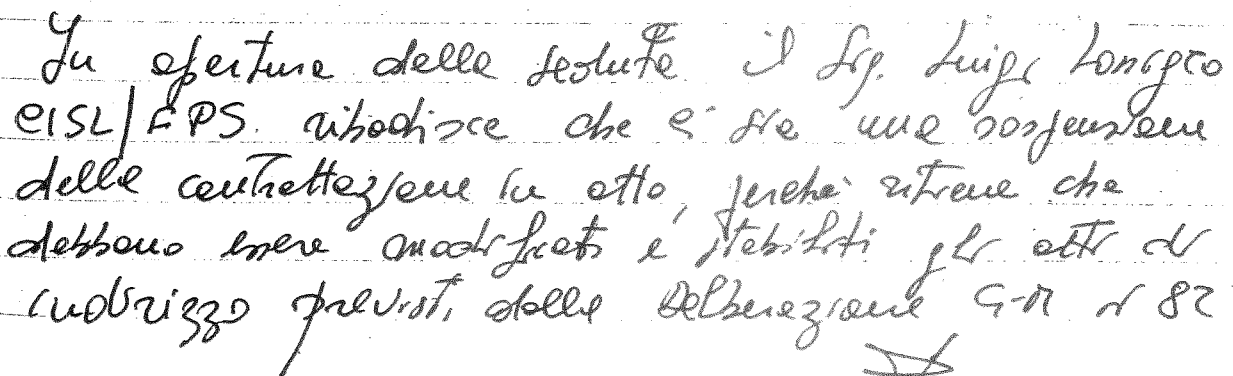 In apertura della seduta il Sig. Luigi Lonigro
CISL/FPS. ribadisce che ci sia una sospensione
della contrattazione in atto, perché ritiene che
debbano essere modificati e stabiliti gli atti di
indirizzo previsti dalla Deliberazione G.M n 82